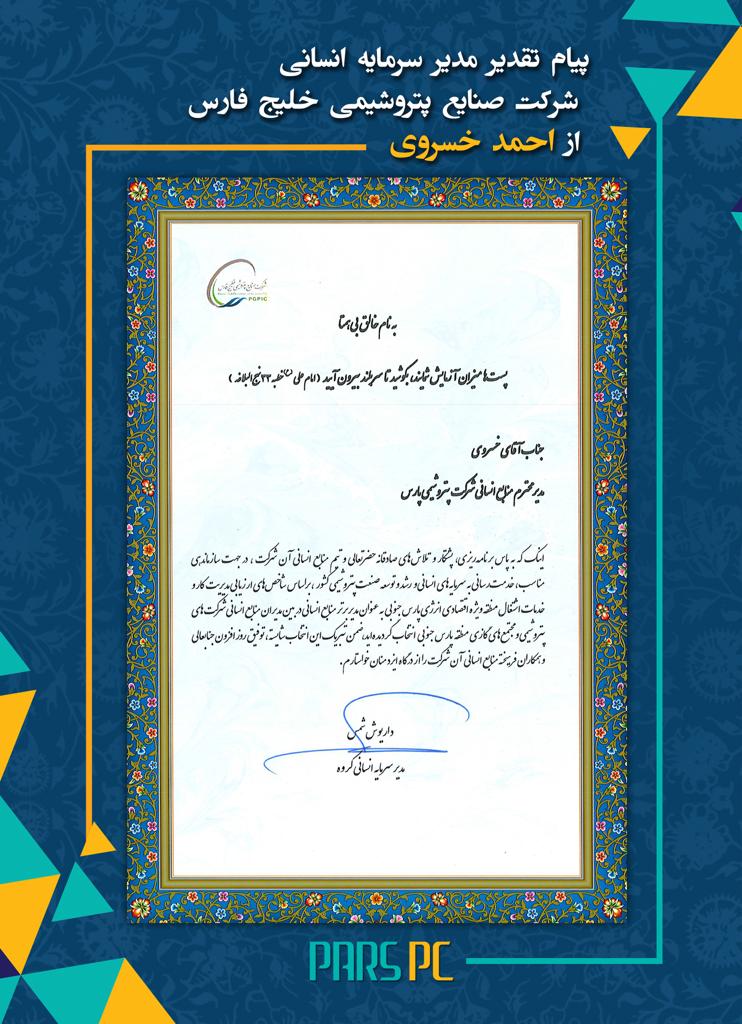 پیام تقدیر مدیر سرمایه انسانی
شرکت صنایع پتروشیمی خلیج فارس
از احمد خسروی
PGPIC
به نام خالق بی همتا
پست‌ها میزان آزمایش شمایند، بکوشید تا سربلند بیرون آیید (امام علی (ع) خطبه ۳۳ نهج البلاغه)
جناب آقای خسروی
مدیر محترم منابع انسانی شرکت پتروشیمی پارس
اینک که به پاس برنامه‌ریزی، پشتکار و تلاش‌های صادقانه حضرتعالی و تیم منابع انسانی آن شرکت، در جهت سازماندهی
مناسب، خدمت رسانی به سرمایه‌های انسانی و رشد و توسعه صنعت پتروشیمی کشور، براساس شاخص‌های ارزیابی مدیریت کار و
خدمات اشتغال منطقه ویژه اقتصادی انرژی پارس جنوبی به عنوان مدیر برتر منابع انسانی در بین مدیران منابع انسانی شرکت‌های
پتروشیمی و مجتمع‌های گازی منطقه پارس جنوبی انتخاب گردیده‌اید، ضمن تبریک این انتخاب شایسته، توفیق روز افزون جنابعالی
و همکاران فرهیخته منابع انسانی آن شرکت را از درگاه ایزد منان خواستارم.
داریوش شمس
مدیر سرمایه انسانی گروه
PARS PC